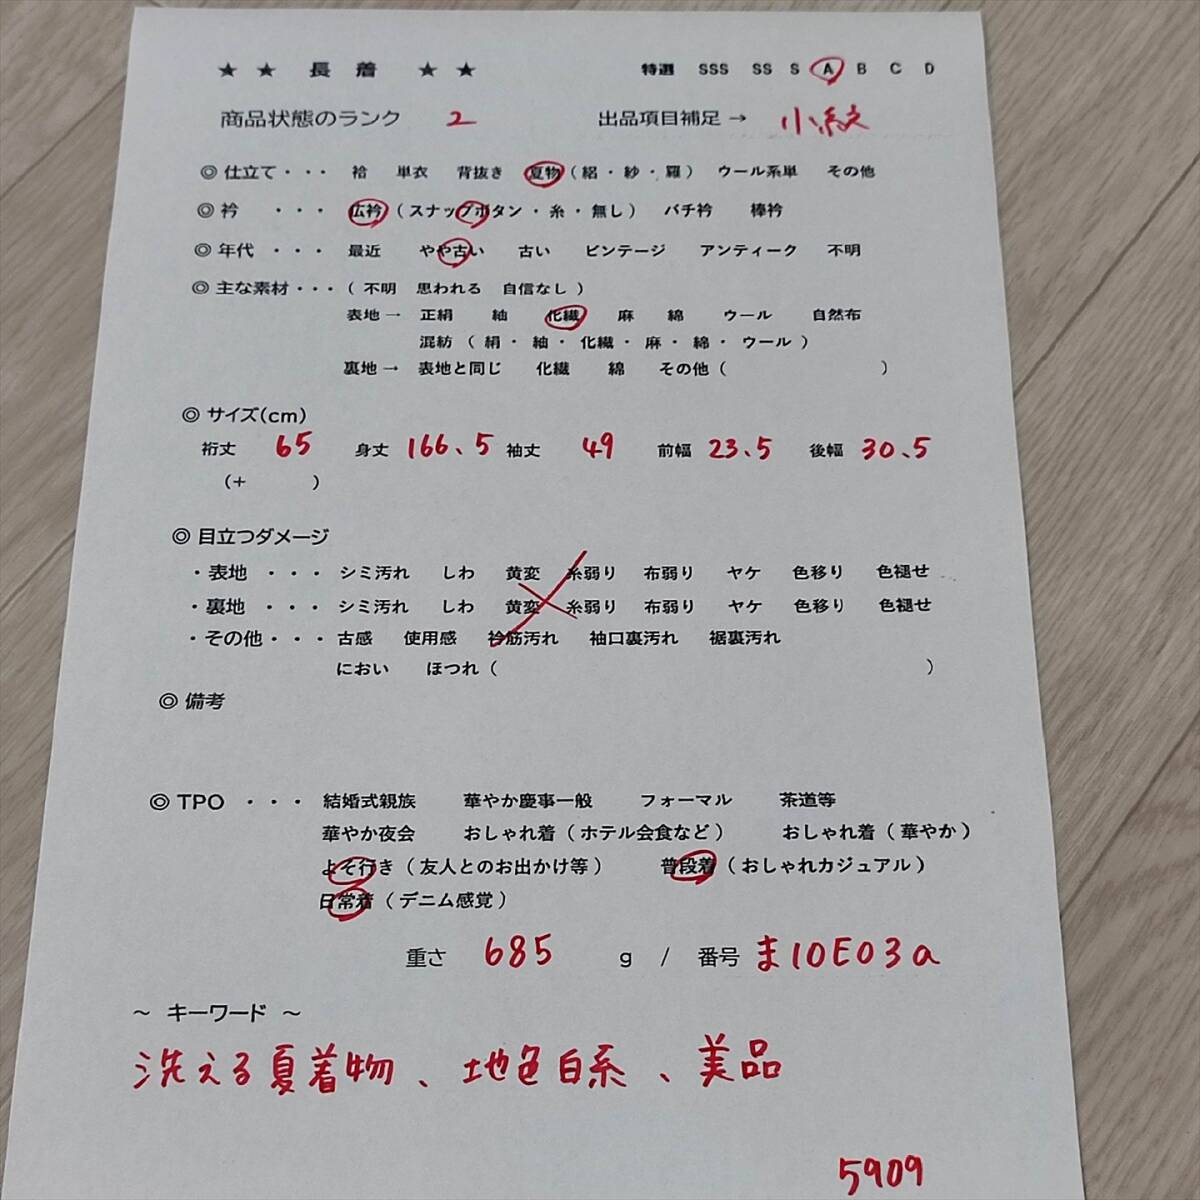 ★ ★ 長 着 ★ ★ 特選 SSS SS S A B C D
商品状態のランク 2 出品項目補足→ 小紋
◎ 仕立て・・・ 袷 単衣 背抜き 夏物(絽・紗・羅) ウール系単 その他
◎ 衿 ・・・ 広衿(スナップボタン・糸・無し) バチ衿 棒衿
◎ 年代 ・・・ 最近 やや古い 古い ビンテージ アンティーク 不明
◎ 主な素材・・・( 不明 思われる 自信なし )
表地→ 正絹 紬 化繊 麻 綿 ウール 自然布
混紡 ( 絹・紬・化繊・麻・綿・ウール )
裏地→ 表地と同じ 化繊 綿 その他 ( )
◎ サイズ(cm)
裄丈 65 身丈 166、5 袖丈 49 前幅 23、5 後幅 30、5
(+ )
◎ 目立つダメージ
・表地 ・・・ シミ汚れ しわ 黄変 糸弱り 布弱り ヤケ 色移り 色褪せ
・裏地 ・・・ シミ汚れ しわ 黄変 糸弱り 布弱り ヤケ 色移り 色褪せ
・その他・・・ 古感 使用感 衿筋汚れ 袖口裏汚れ 裾裏汚れ
におい ほつれ ( )
◎ 備考
◎ TPO ・・・ 結婚式親族 華やか慶事一般 フォーマル 茶道等
華やか夜会 おしゃれ着 ( ホテル会食など ) おしゃれ着 ( 華やか )
よそ行き ( 友人とのお出かけ等 ) 普段着 ( おしゃれカジュアル )
日常着 ( デニム感覚 )
重さ 685 g / 番号 ま10E03a
～ キーワード ～
洗える夏着物、地色白系、美品
5909